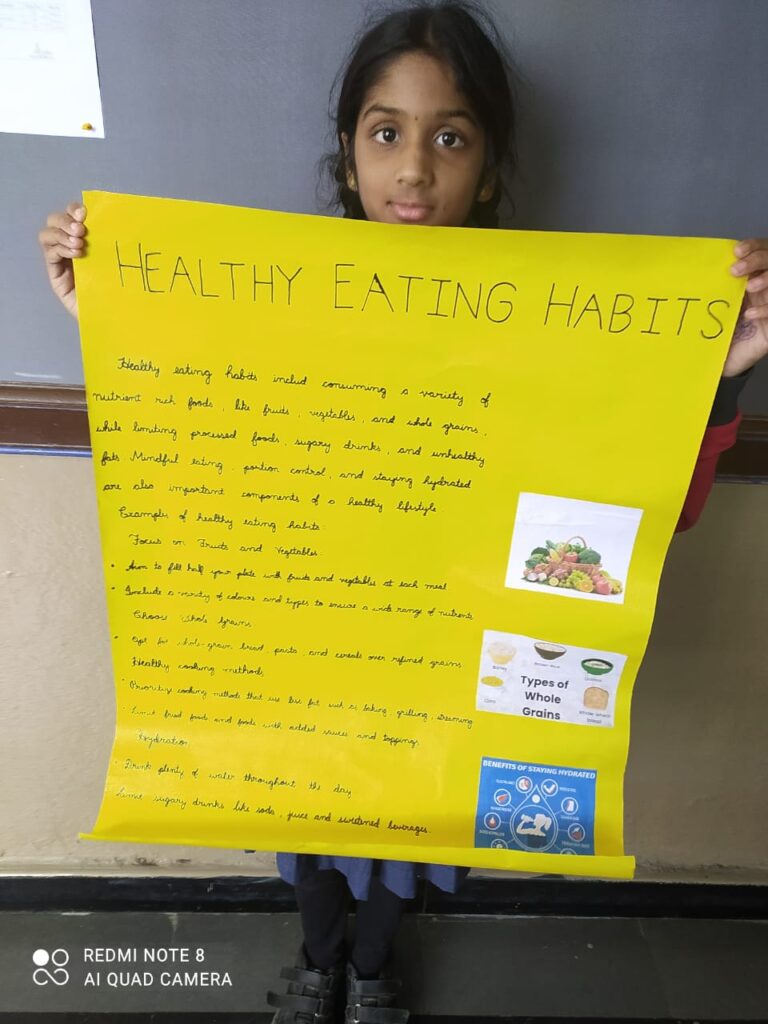 HEALTHY EATING HABITS
Healthy eating habits includ consuming a variety of
nutrient rich foods, like fruits, vegetables, and whole grains,
while limiting processed foods, sugary drinks, and unhealthy
fats. Mindful eating, portion control, and staying hydrated
are also important components of a healthy lifestyle
Examples of healthy eating habits:
Focus on Fruits and Vegetables.
• Aim to fill half your plate with fruits and vegetables at each meal
• Include a variety of colours and types to ensure a wide range of nutrients
Choose Whole Grains
• Opt for whole-grain bread, pasta, and cereals over refined grains.
Healthy cooking methods
• Prioritize cooking methods that use less fat such as, baking, grilling, steaming
• Limit fried foods and foods with added sauces and toppings
Hydration
• Drink plenty of water throughout the day
Limit sugary drinks like soda, juice and sweetened beverages.
Barley
Brown Rice
Quinoa
Corn
Types of
Whole
Grains
Whole Wheat
Bread
BENEFITS OF STAYING HYDRATED
REDMI NOTE 8
AI QUAD CAMERA